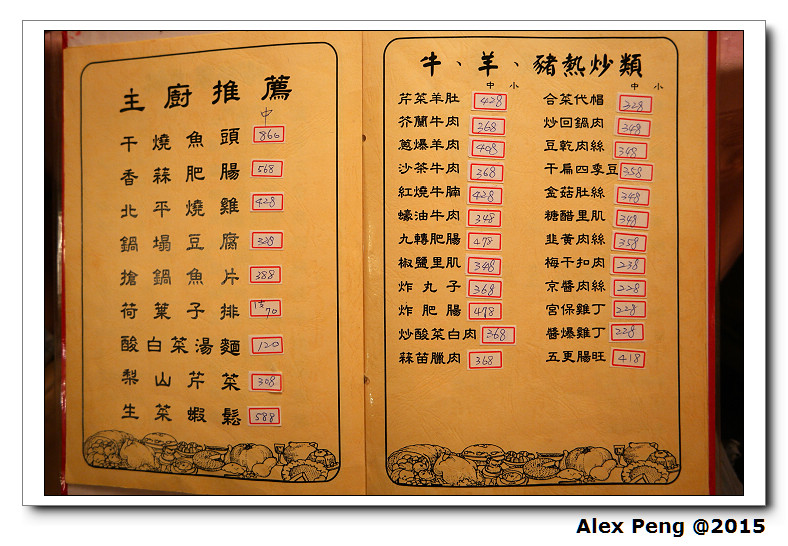 主廚推薦
中
干燒魚頭 860
香蒜肥腸 568
北平燒雞 428
鍋塌豆腐 328
搶鍋魚片 388
荷葉子排 1支70
酸白菜湯麵 120
梨山芹菜 308
生菜蝦鬆 588
牛、羊、豬熱炒類
中 小
芹菜羊肚 428
芥蘭牛肉 368
蔥爆羊肉 408
沙茶牛肉 368
紅燒牛腩 428
蠔油牛肉 348
九轉肥腸 478
椒鹽里肌 348
炸丸子 368
炸肥腸 478
炒酸菜白肉 368
蒜苗臘肉 368
中 小
合菜代帽 328
炒回鍋肉 348
豆乾肉絲 348
干扁四季豆 358
金菇肚絲 348
糖醋里肌 348
韭黃肉絲 358
梅干扣肉 238
京醬肉絲 228
宮保雞丁 228
醬爆雞丁 228
五更腸旺 418
Alex Peng @2015